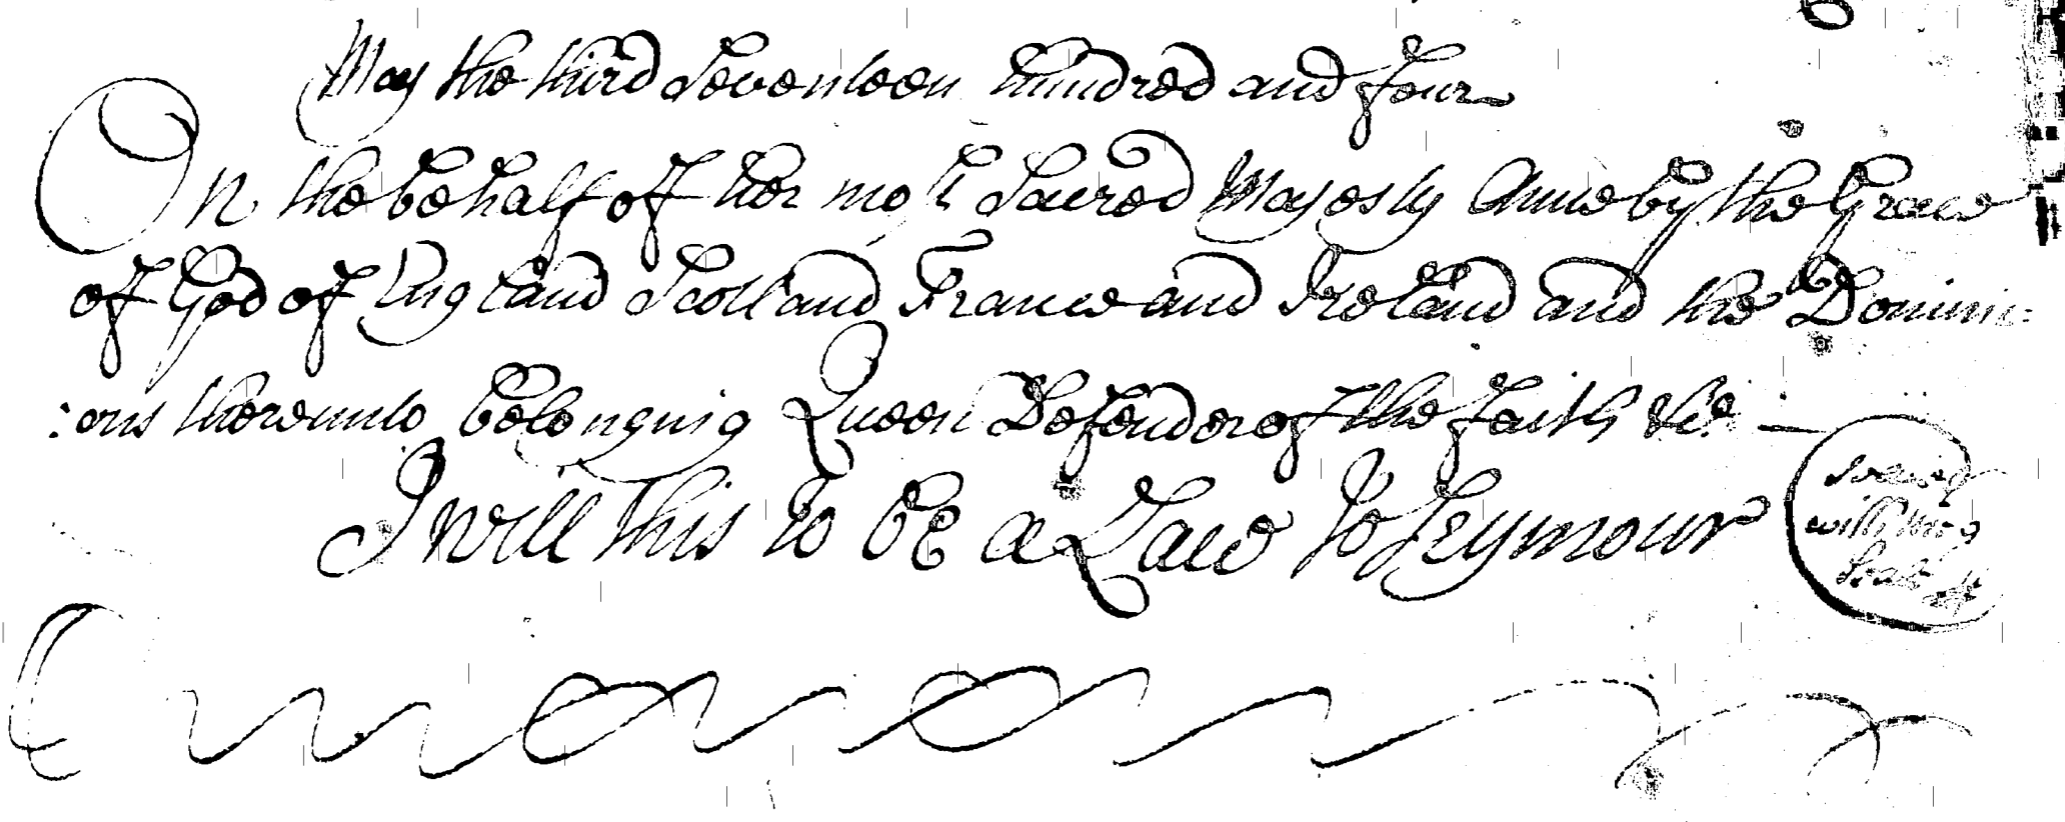 May the third Seventeen hundred and four
On the behalf of her most Sacred Majesty Anne by the Grace
of God of England Scotland France and Ireland and the Domini=
:ons thereunto belonging Queen Defender of the Faith &c.
I will this to be a Law Jo Seymour